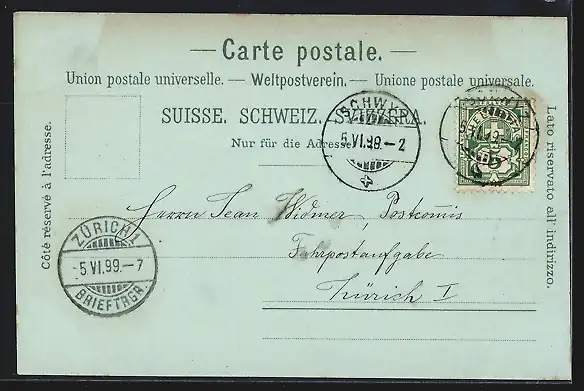 — Carte postale. —
Union postale universelle. — Weltpostverein. — Unione postale universale.
SUISSE. SCHWEIZ. SVIZZERA.
Nur für die Adresse.
Côté réservé à l'adresse.
Lato riservato all' indirizzo.
SCHWYZ
5.VI.99.–2
5
ZÜRICH 1
5.VI.99.–7
BRIEFTRGR.
Herrn Jean Widmer, Postcomis
Fahrpostaufgabe
Zürich I